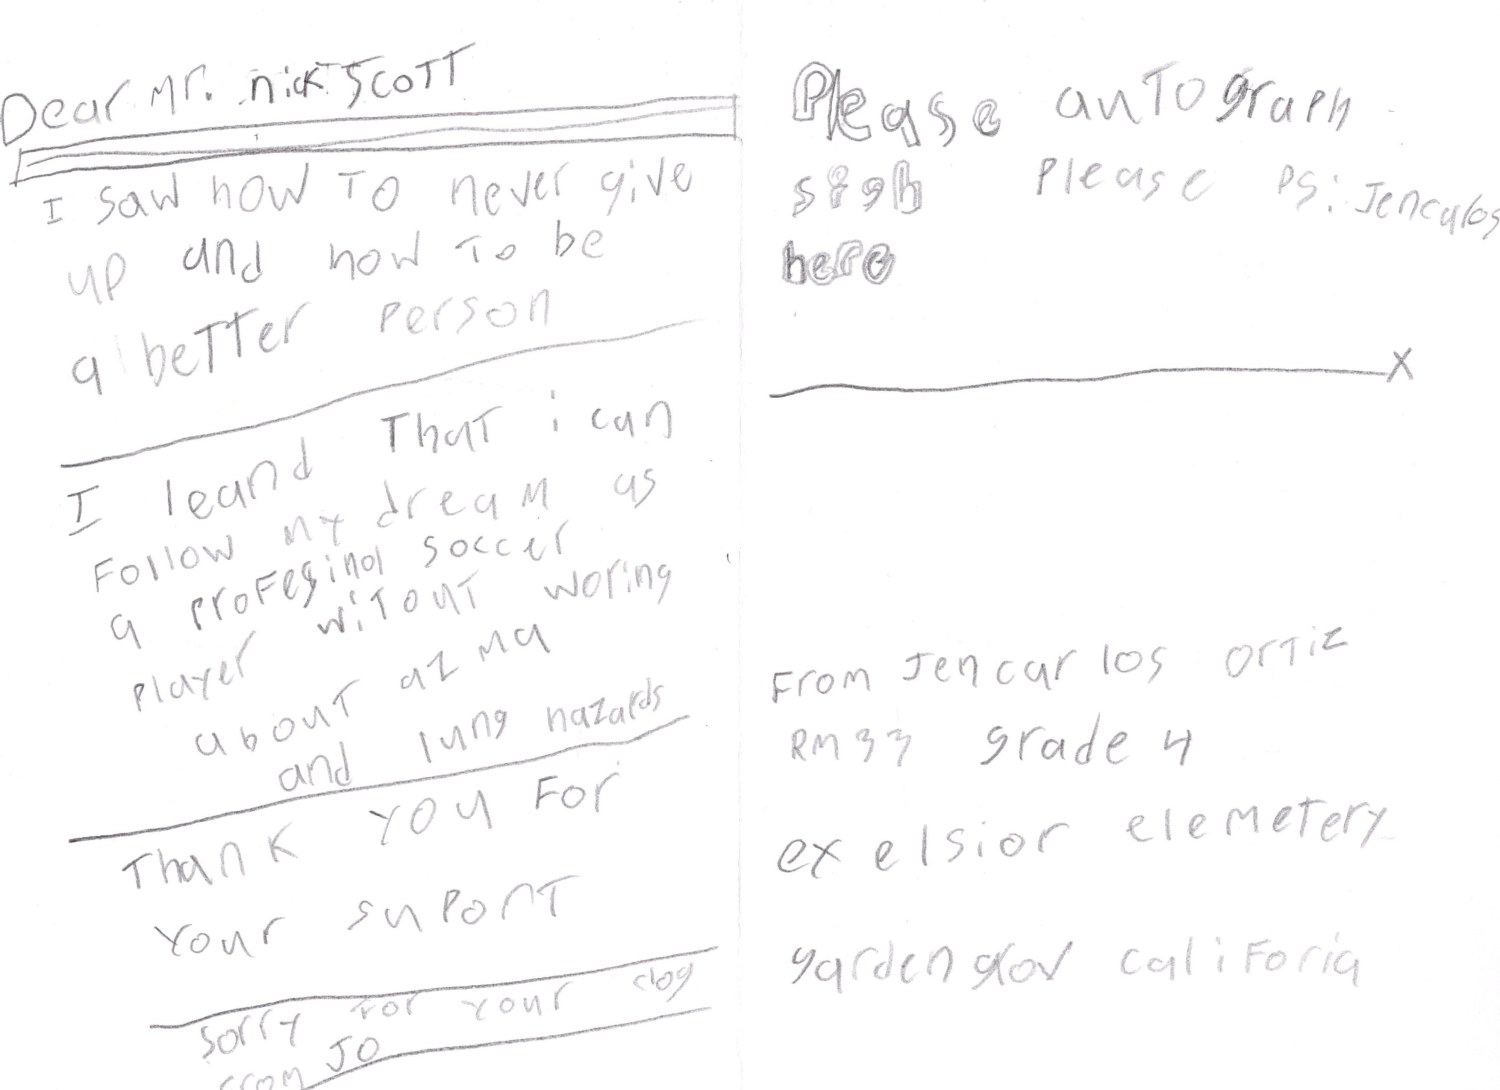 Dear Mr. nick Scott
I saw how To never give
up and how To be
a better person
I leand That i can
Follow my dream as
a profeginol soccer
player witout woring
about azma
and lung hazards
Thank you For
your suport
Sorry For your dog
From JO
Please autograph
sign Please Ps: Jencalos
here
X
From Jencarlos Ortiz
RM 33 grade 4
excelsior elemetery
garden grov califoria